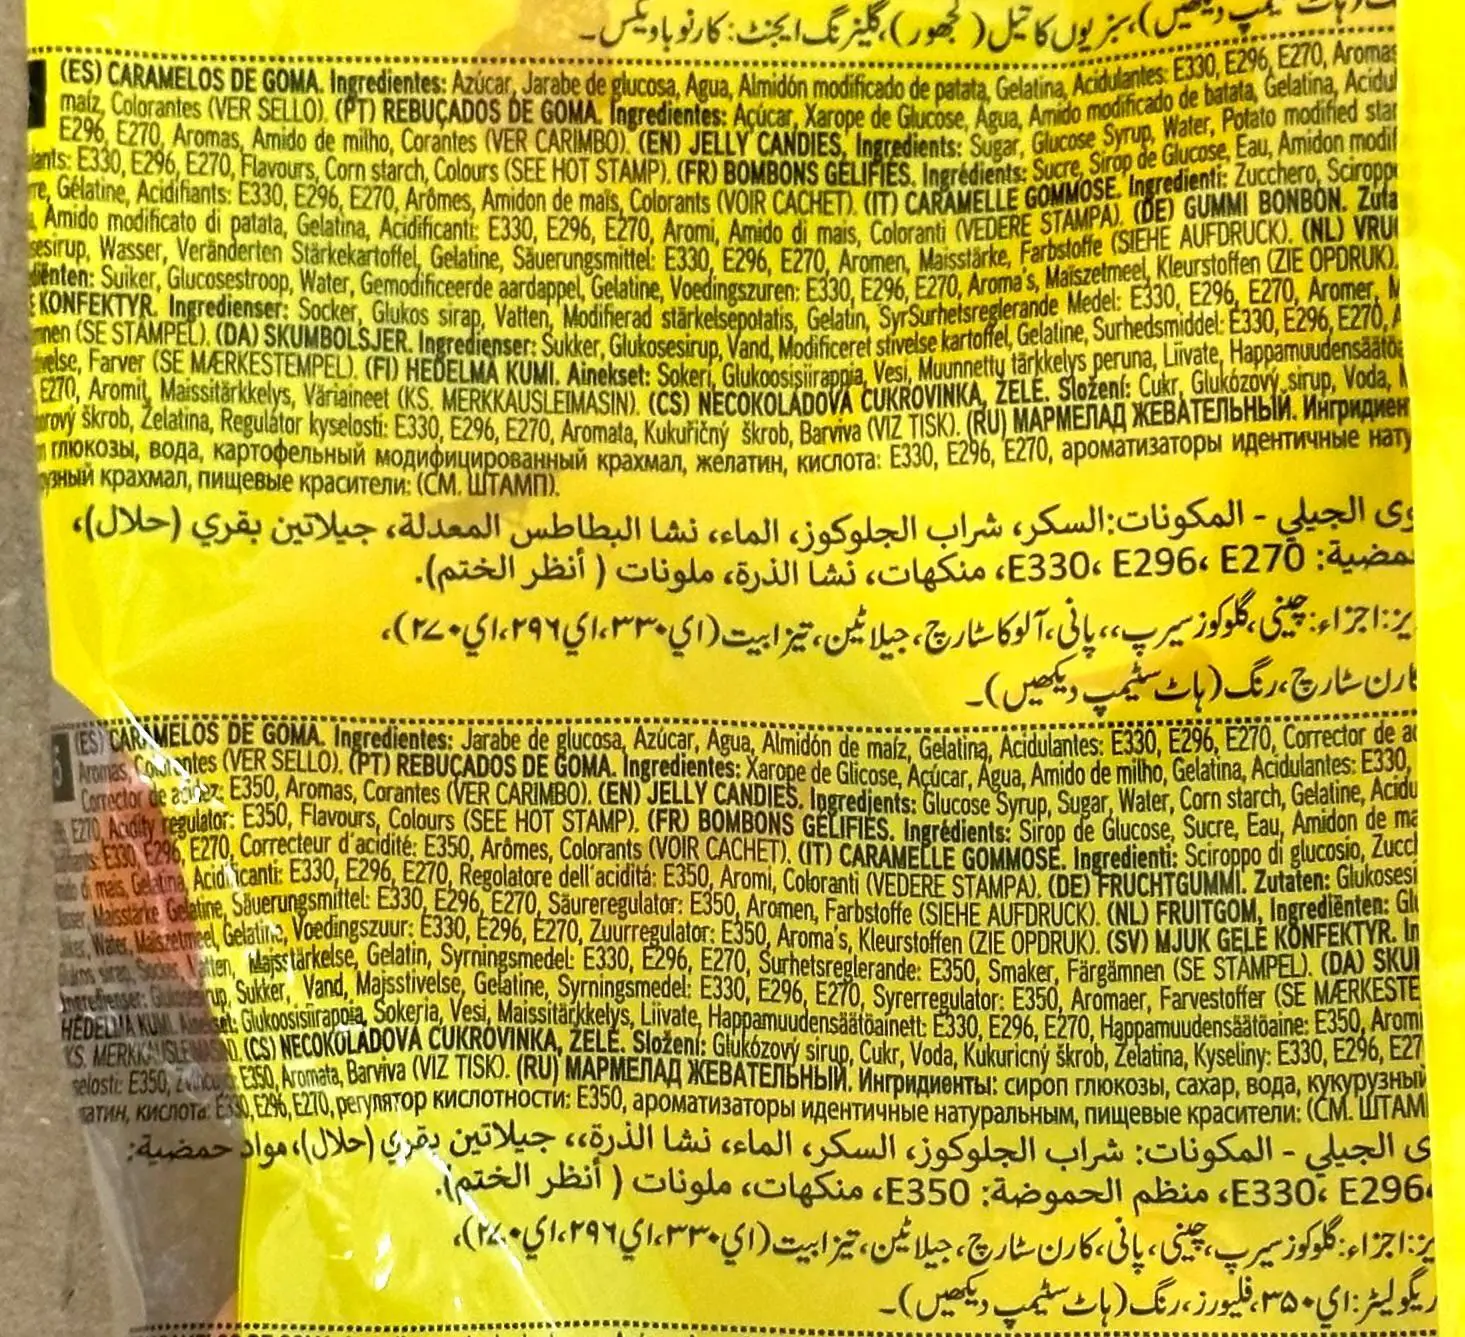 (ہاٹ سٹیمپ دیکھیں)، سبزیوں کا تیل (کھجور)، گلیزنگ ایجنٹ: کارنوباویکس۔
(ES) CARAMELOS DE GOMA. Ingredientes: Azúcar, Jarabe de glucosa, Agua, Almidón modificado de patata, Gelatina, Acidulantes: E330, E296, E270, Aromas
maíz, Colorantes (VER SELLO). (PT) REBUÇADOS DE GOMA. Ingredientes: Açúcar, Xarope de Glucose, Agua, Amido modificado de batata, Gelatina, Acidul
E296, E270, Aromas, Amido de milho, Corantes (VER CARIMBO). (EN) JELLY CANDIES, Ingredients: Sugar, Glucose Syrup, Water, Potato modified star
lants: E330, E296, E270, Flavours, Corn starch, Colours (SEE HOT STAMP). (FR) BOMBONS GELIFIÉS. Ingrédients: Sucre, Sirop de Glucose, Eau, Amidon modif
re, Gélatine, Acidifiants: E330, E296, E270, Arômes, Amidon de maïs, Colorants (VOIR CACHET). (IT) CARAMELLE GOMMOSE. Ingredienti: Zucchero, Sciropp
, Amido modificato di patata, Gelatina, Acidificanti: E330, E296, E270, Aromi, Amido di mais, Coloranti (VEDERE STAMPA). (DE) GUMMI BONBON. Zuta
sesirup, Wasser, Veränderten Stärkekartoffel, Gelatine, Säuerungsmittel: E330, E296, E270, Aromen, Maisstärke, Farbstoffe (SIEHE AUFDRUCK). (NL) VRU
diënten: Suiker, Glucosestroop, Water, Gemodificeerde aardappel, Gelatine, Voedingszuren: E330, E296, E270, Aroma's, Maïszetmeel, Kleurstoffen (ZIE OPDRUK).
KONFEKTYR. Ingredienser: Socker, Glukos sirap, Vatten, Modifierad stärkelsepotatis, Gelatin, SyrSurhetsreglerande Medel: E330, E296, E270, Aromer, M
nen (SE STÄMPEL). (DA) SKUMBOLSJER. Ingredienser: Sukker, Glukosesirup, Vand, Modificeret stivelse kartoffel, Gelatine, Surhedsmiddel: E330, E296, E270, A
velse, Farver (SE MÆRKESTEMPEL). (FI) HEDELMA KUMI. Ainekset: Sokeri, Glukoosisiirappia, Vesi, Muunnettu tärkkelys peruna, Liivate, Happamuudensäätöa
E270, Aromit, Maissitärkkelys, Väriaineet (KS. MERKKAUSLEIMASIN). (CS) NECOKOLÁDOVÁ CUKROVINKA, ZELE. Složení: Cukr, Glukózový sirup, Voda, M
orový škrob, Želatina, Regulátor kyselosti: E330, E296, E270, Aromata, Kukuřičný škrob, Barviva (VIZ TISK). (RU) МАРМЕЛАД ЖЕВАТЕЛЬНЫЙ. Ингридиен
глюкозы, вода, картофельный модифицированный крахмал, желатин, кислота: E330, E296, E270, ароматизаторы идентичные нату
узный крахмал, пищевые красители: (СМ. ШТАМП).
وى الجيلي - المكونات:السكر، شراب الجلوكوز، الماء، نشا البطاطس المعدلة، جيلاتين بقري (حلال)،
حمضية: E330، E296، E270، منكهات، نشا الذرة، ملونات ( أنظر الختم).
یز:اجزاء: چینی، گلوکوز سیرپ،، پانی، آلو کا سٹارچ، جیلاٹین، تیزابیت (ای۳۳۰،ای۲۹۶،ای۲۷۰)،
کارن سٹارچ، رنگ (ہاٹ سٹیمپ دیکھیں)۔
(ES) CARAMELOS DE GOMA. Ingredientes: Jarabe de glucosa, Azúcar, Agua, Almidón de maíz, Gelatina, Acidulantes: E330, E296, E270, Corrector de ac
Aromas, Colorantes (VER SELLO). (PT) REBUÇADOS DE GOMA. Ingredientes: Xarope de Glicose, Açúcar, Água, Amido de milho, Gelatina, Acidulantes: E330,
Corrector de acidez: E350, Aromas, Corantes (VER CARIMBO). (EN) JELLY CANDIES. Ingredients: Glucose Syrup, Sugar, Water, Corn starch, Gelatine, Acidu
E270, Acidity regulator: E350, Flavours, Colours (SEE HOT STAMP). (FR) BOMBONS GÉLIFIÉS. Ingrédients: Sirop de Glucose, Sucre, Eau, Amidon de ma
difiants: E330, E296, E270, Correcteur d'acidité: E350, Arômes, Colorants (VOIR CACHET). (IT) CARAMELLE GOMMOSE. Ingredienti: Sciroppo di glucosio, Zucch
Amido di mais, Gelatina, Acidificanti: E330, E296, E270, Regolatore dell'aciditá: E350, Aromi, Coloranti (VEDERE STAMPA). (DE) FRUCHTGUMMI. Zutaten: Glukosesi
Wasser, Maisstärke Gelatine, Säuerungsmittel: E330, E296, E270, Säureregulator: E350, Aromen, Farbstoffe (SIEHE AUFDRUCK). (NL) FRUITGOM, Ingrediënten: Glu
Suiker, Water, Maiszetmeel, Gelatine, Voedingszuur: E330, E296, E270, Zuurregulator: E350, Aroma's, Kleurstoffen (ZIE OPDRUK). (SV) MJUK GELÉ KONFEKTYR. In
Glukos sirap, Socker, Vatten, Majsstärkelse, Gelatin, Syrningsmedel: E330, E296, E270, Surhetsreglerande: E350, Smaker, Färgämnen (SE STÄMPEL). (DA) SKU
Ingredienser: Glukosesirup, Sukker, Vand, Majsstivelse, Gelatine, Syrningsmedel: E330, E296, E270, Syrerregulator: E350, Aromaer, Farvestoffer (SE MÆRKESTE
HEDELMA KUMI. Ainekset: Glukoosisiirappia, Sokeria, Vesi, Maissitärkkelys, Liivate, Happamuudensäätöainett: E330, E296, E270, Happamuudensäätöaine: E350, Aromi
KS. MERKKAUSLEIMASIN). (CS) NECOKOLADOVA CUKROVINKA, ŽELÉ. Složení: Glukózový sirup, Cukr, Voda, Kukuricný škrob, Želatina, Kyseliny: E330, E296, E27
selosti: E350, E350, Aromata, Barviva (VIZ TISK). (RU) МАРМЕЛАД ЖЕВАТЕЛЬНЫЙ. Ингридиенты: сироп глюкозы, сахар, вода, кукурузный
латин, кислота: E330, E296, E270, регулятор кислотности: E350, ароматизаторы идентичные натуральным, пищевые красители: (СМ. ШТАМ
ى الجيلي - المكونات: شراب الجلوكوز، السكر، الماء، نشا الذرة،، جيلاتين بقري (حلال)، مواد حمضية:
E330، E296، منظم الحموضة: E350، منكهات، ملونات ( أنظر الختم).
یز:اجزاء: گلوکوز سیرپ، چینی، پانی، کارن سٹارچ، جیلاٹین، تیزابیت (ای۳۳۰،ای۲۹۶،ای۲۷۰)،
ریگولیٹر: ای۳۵۰، فلیورز، رنگ (ہاٹ سٹیمپ دیکھیں)۔